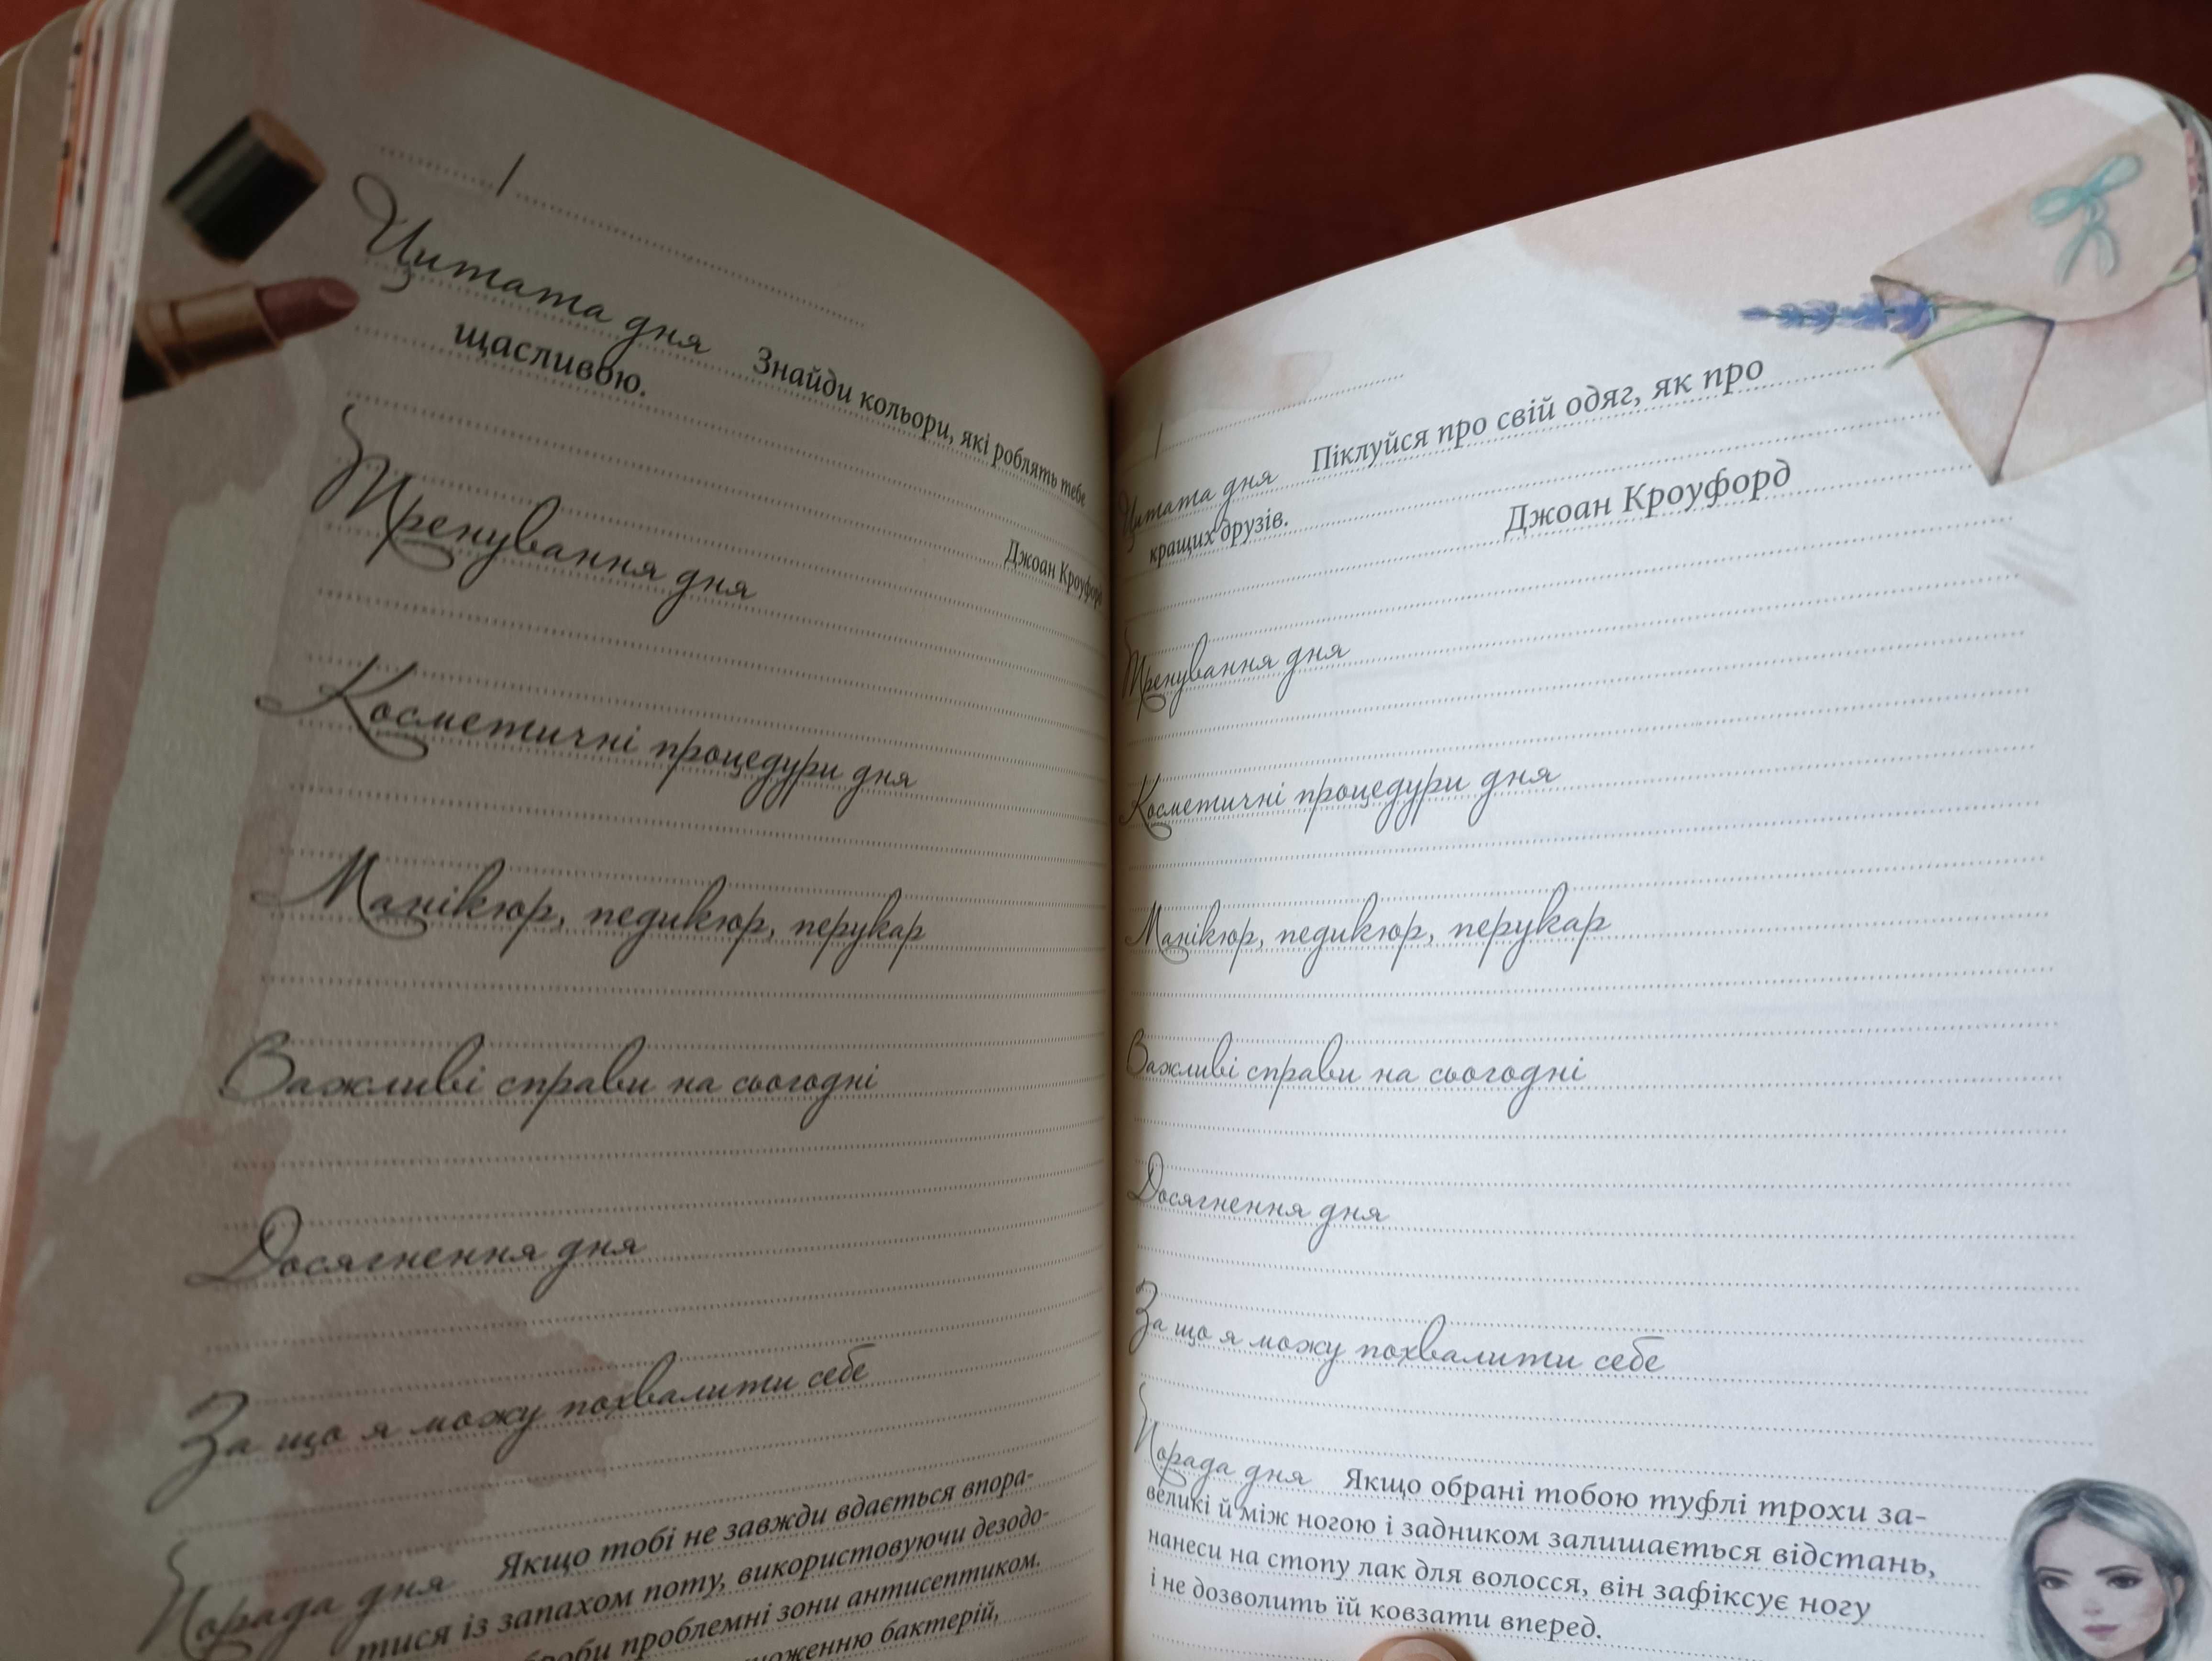 /
Цитата дня Знайди кольори, які роблять тебе
щасливою.
Джоан Кроуфорд
Тренування дня
Косметичні процедури дня
Манікюр, педикюр, перукар
Важливі справи на сьогодні
Досягнення дня
За що я можу похвалити себе
Порада дня Якщо тобі не завжди вдається впора-
тися із запахом поту, використовуючи дезодо-
проблемні зони антисептиком.
бактерій,
/
Цитата дня Піклуйся про свій одяг, як про
кращих друзів.
Джоан Кроуфорд
Тренування дня
Косметичні процедури дня
Манікюр, педикюр, перукар
Важливі справи на сьогодні
Досягнення дня
За що я можу похвалити себе
Порада дня Якщо обрані тобою туфлі трохи за-
великі й між ногою і задником залишається відстань,
нанеси на стопу лак для волосся, він зафіксує ногу
і не дозволить їй ковзати вперед.